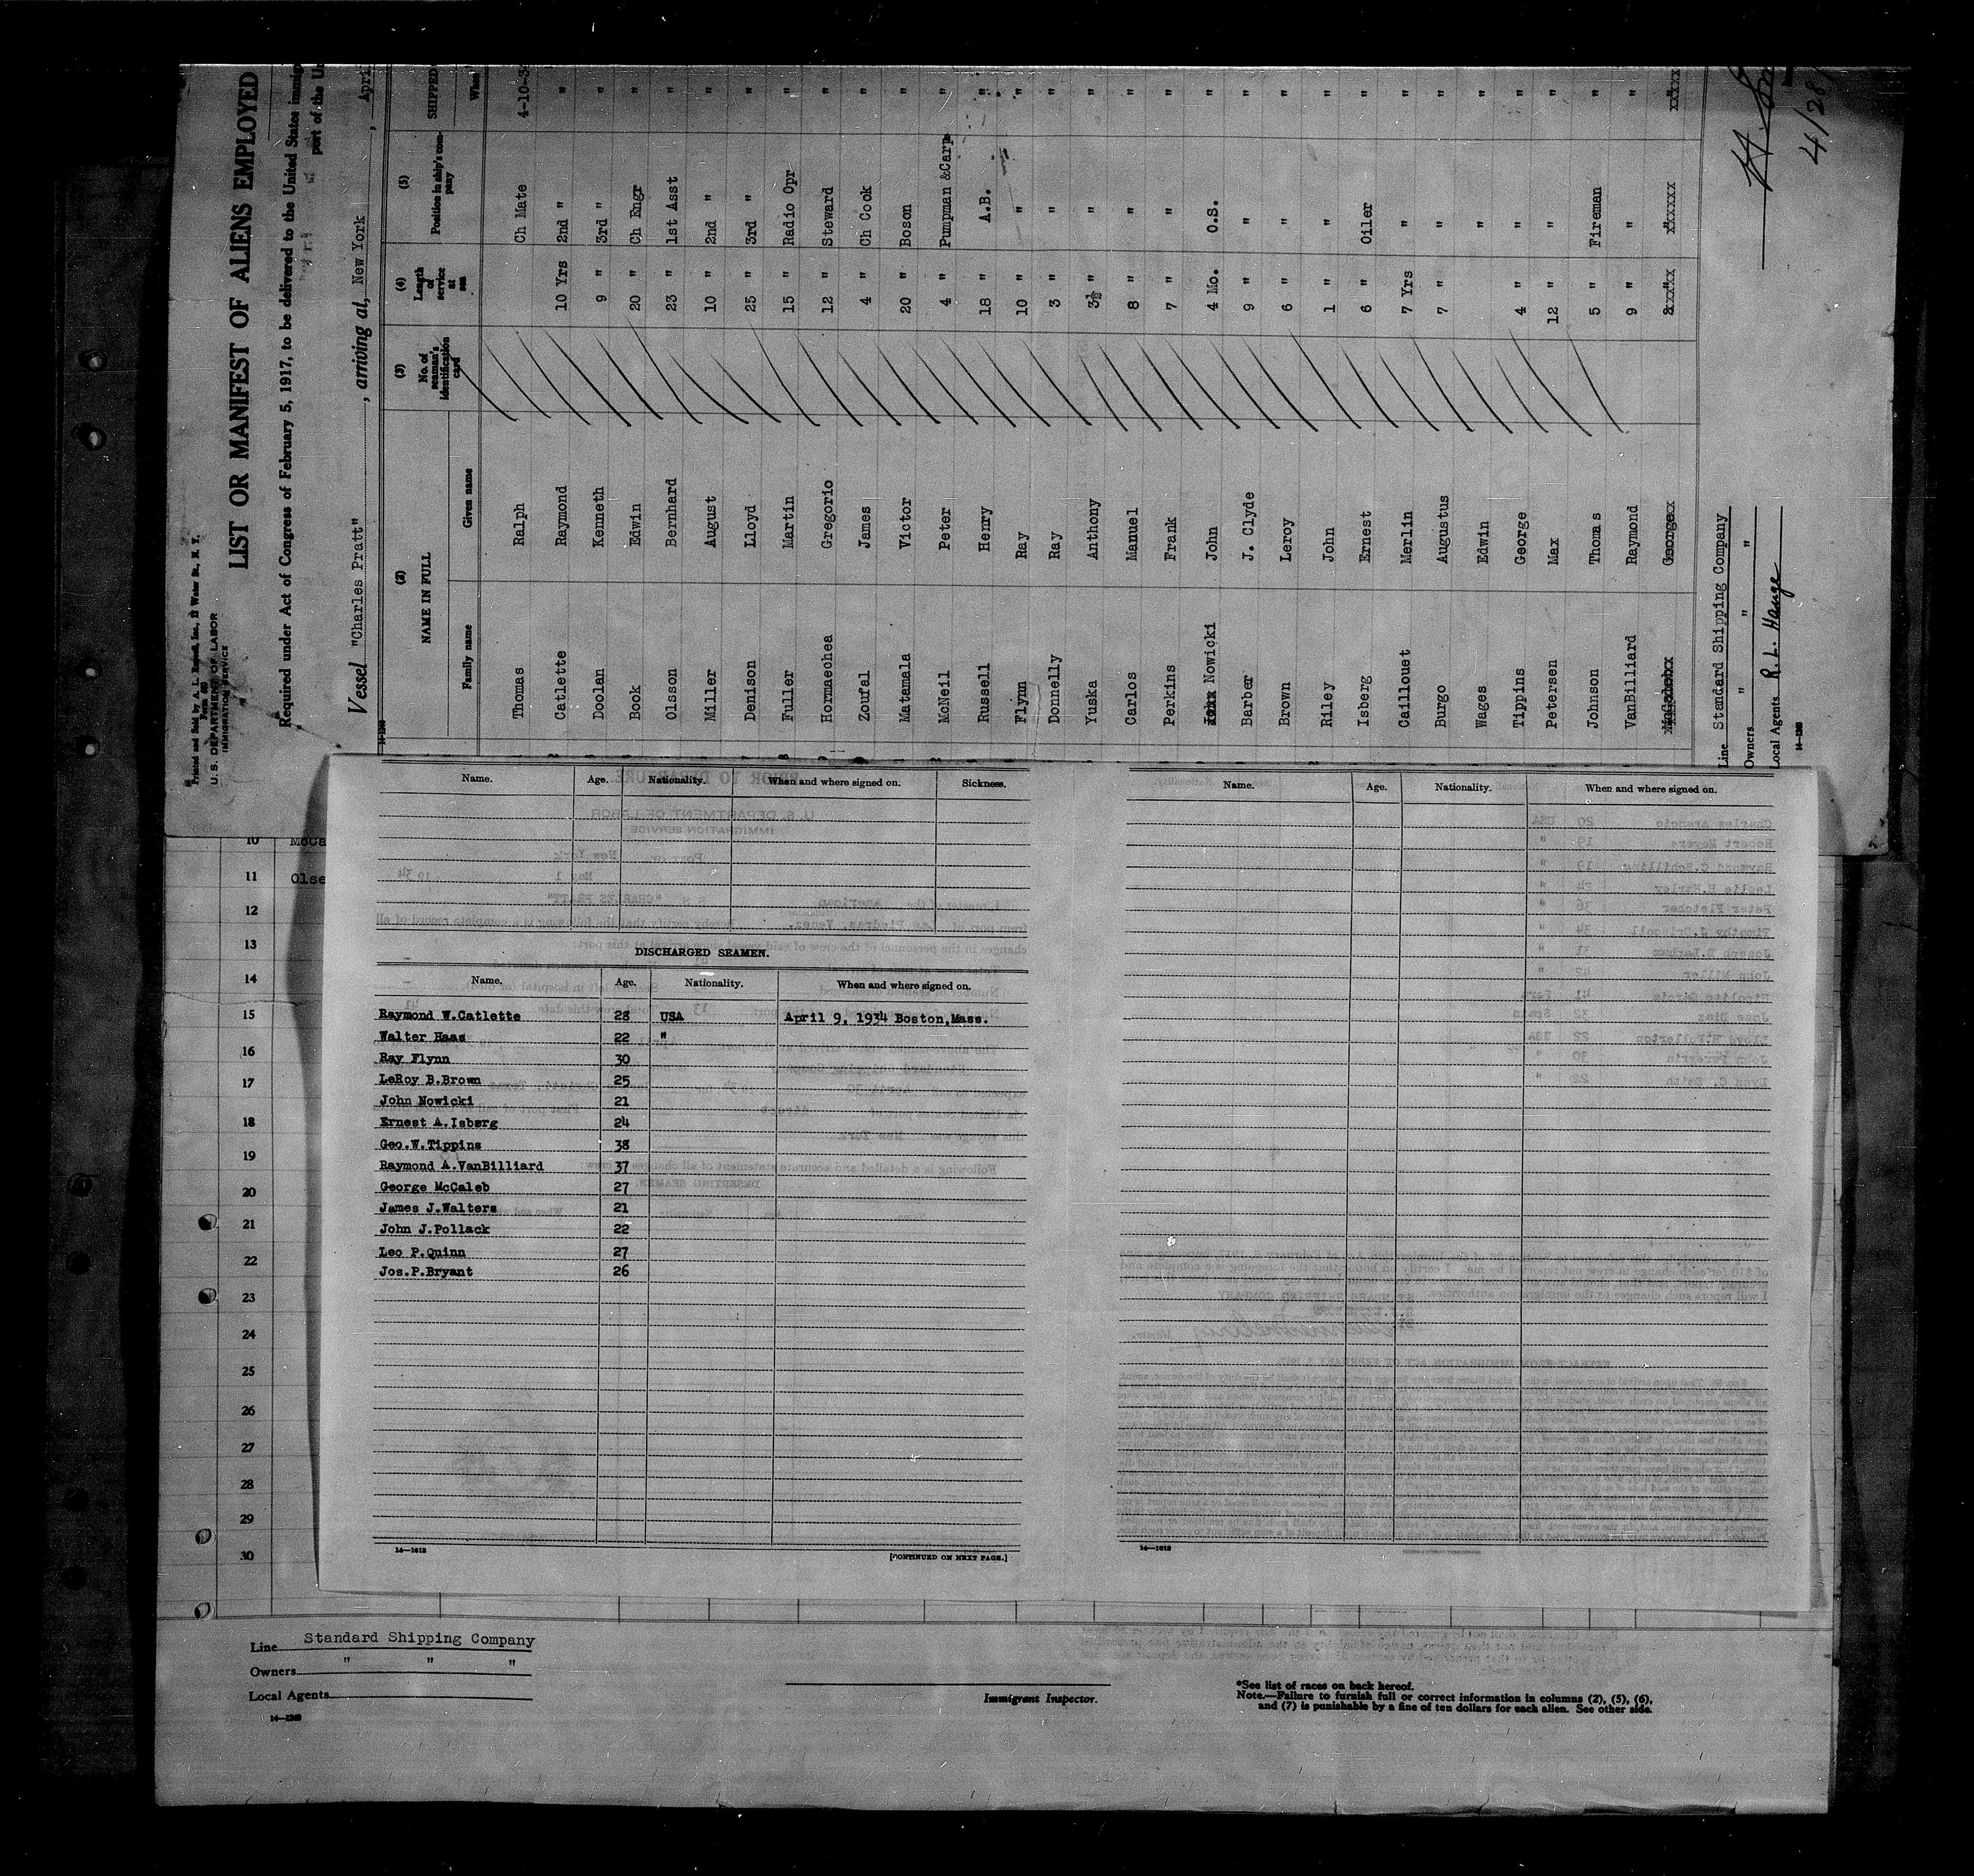 Printed and Sold by A. L. Russell, Inc., 12 Water St., N. Y.
Form 680
U. S. DEPARTMENT OF LABOR
IMMIGRATION SERVICE
LIST OR MANIFEST OF ALIENS EMPLOYED
Required under Act of Congress of February 5, 1917, to be delivered to the United States immig
port of the Un
Vessel "Charles Pratt", arriving at, New York, Apri
(2) (3) (4) (5)
NAME IN FULL No. of seaman's identification card Length of service at sea Position in ship's company SHIPPED
Family name Given name When
Thomas Ralph Ch Mate 4-10-34
Catlette Raymond 10 Yrs 2nd " "
Doolan Kenneth 9 " 3rd " "
Book Edwin 20 " Ch Engr "
Olsson Bernhard 23 " 1st Asst "
Miller August 10 " 2nd " "
Denison Lloyd 25 " 3rd " "
Fuller Martin 15 " Radio Opr "
Hormaechea Gregorio 12 " Steward "
Zoufal James 4 " Ch Cook "
Matamala Victor 20 " Boson "
McNeil Peter 4 " Pumpman &Carp "
Russell Henry 18 " A.B. "
Flynn Ray 10 " " "
Donnelly Ray 3 " " "
Yuska Anthony 3½ " " "
Carlos Manuel 8 " " "
Perkins Frank 7 " " "
Nowicki John 4 Mo. O.S. "
Barber J. Clyde 9 " " "
Brown Leroy 6 " " "
Riley John 1 " " "
Isberg Ernest 6 " Oiler "
Caillouet Merlin 7 Yrs " "
Burgo Augustus 7 " " "
Wages Edwin " "
Tippins George 4 " " "
Petersen Max 12 " " "
Johnson Thomas 5 " Fireman "
VanBilliard Raymond 9 " " "
Line Standard Shipping Company
Owners " " "
Local Agents R. L. Hange
14-1240
4/28/
Name. Age. Nationality. When and where signed on. Sickness.
DISCHARGED SEAMEN.
Name. Age. Nationality. When and where signed on.
Raymond W.Catlette 28 USA April 9, 1934 Boston,Mass.
Walter Haas 22 "
Ray Flynn 30
LeRoy B.Brown 25
John Nowicki 21
Ernest A.Isberg 24
Geo.W.Tippins 38
Raymond A.VanBilliard 37
George McCaleb 27
James J.Walters 21
John J.Pollack 22
Leo P.Quinn 27
Jos.P.Bryant 26
14—1613
[CONTINUED ON NEXT PAGE.]
Name. Age. Nationality. When and where signed on.
14—1613
10 McCa
11 Olse
12
13
14
15
16
17
18
19
20
21
22
23
24
25
26
27
28
29
30
Line Standard Shipping Company
Owners " " "
Local Agents
Immigrant Inspector.
*See list of races on back hereof.
Note.—Failure to furnish full or correct information in columns (2), (5), (6),
and (7) is punishable by a fine of ten dollars for each alien. See other side.